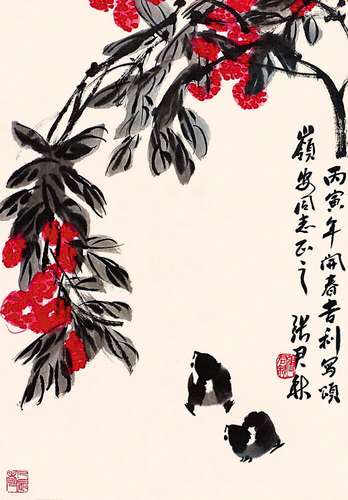 丙寅年開春吉利寫頌
嶺安同志正之
張君秋